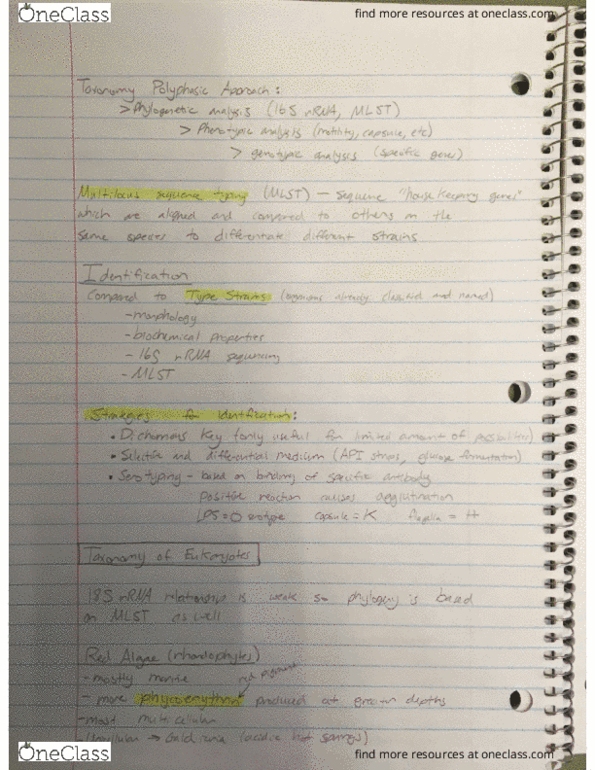 OneClass
find more resources at oneclass.com
Taxonomy Polyphasic Approach:
> Phylogenetic analysis (16S rRNA, MLST)
> Phenotypic analysis (motility, capsule, etc)
> genotypic analysis (specific genes)
Multilocus sequence typing (MLST) — sequence "house keeping genes"
which are aligned and compared to others in the
same species to differentiate different strains
Identification
Compared to Type Strains (organisms already classified and named)
- morphology
- biochemical properties
- 16S rRNA sequencing
- MLST
Strategies for Identification:
• Dichomous Key (only useful for limited amount of possibilities)
• Selective and differential medium (API strips, glucose fermentation)
• Serotyping - based on binding of specific antibody
positive reaction causes agglutination
LPS = O capsule = K flagella = H
Taxonomy of Eukaryotes
18S rRNA relationship is weak so phylogeny is based
on MLST as well
Red Algae (rhodophytes)
- mostly marine
red pigment
- more phycoerythrin produced at greater depths
- most multicellular
- Unicellular → (acidic hot springs)
OneClass
find more resources at oneclass.com